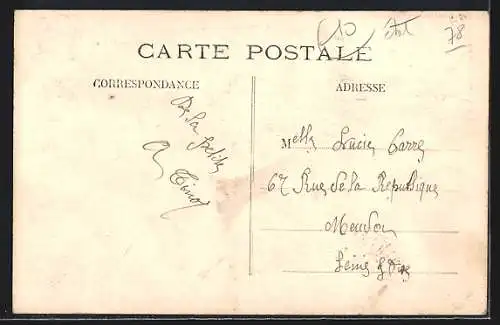 78
CARTE POSTALE
CORRESPONDANCE
De la petite
ADRESSE
Melle Lucie Carré
67 Rue de la République
Meudon
Seine & Oise